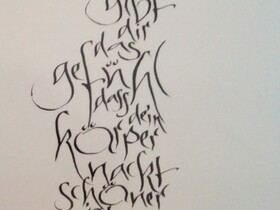 gibt
dir
das
gefühl
dass
dein
körper
nackt
schöner